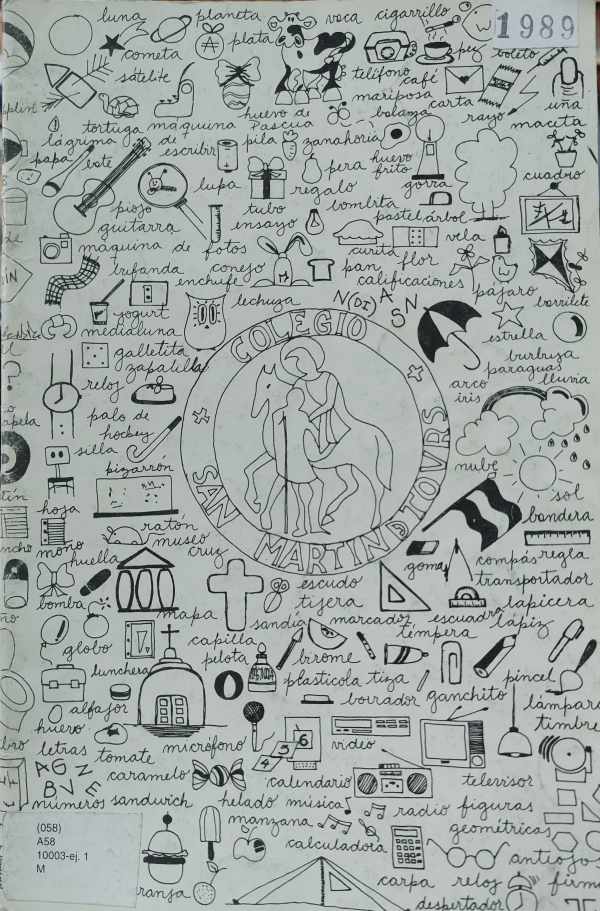 1989
luna planeta vaca cigarrillo
cometa plata pez boleto
satélite teléfono café
mariposa carta uña
huevo de Pascua balanza rayo maceta
tortuga máquina de escribir
lágrima pila zanahoria
papa bate lupa pera huevo frito cuadro
regalo gorra
piojo tubo ensayo bombita pastel árbol
guitarra curita vela
máquina de fotos pan flor
bufanda conejo calificaciones
enchufe pájaro barrilete
yogurt lechuza N(DI) A SN
medialuna estrella
galletita burbuja
zapatilla paraguas
reloj arco iris lluvia
palo de hockey
silla nube
pizarrón sol
COLEGIO
SAN MARTIN D TOVRS
hoja bandera
ratón
moño museo goma compás regla
huella cruz transportador
bomba escudo lapicera
tijera
mapa sandía marcador escuadra lápiz
témpera
globo capilla birome
pelota pincel
lunchera plasticola tiza
borrador ganchito lámpara
alfajor timbre
huevo
letras tomate micrófono video
A G Z
B V E caramelo 4 5 6 calendario televisor
números sandwich helado música radio figuras geométricas
manzana
calculadora anteojos
carpa reloj despertador
(058)
A58
10003-ej. 1
M